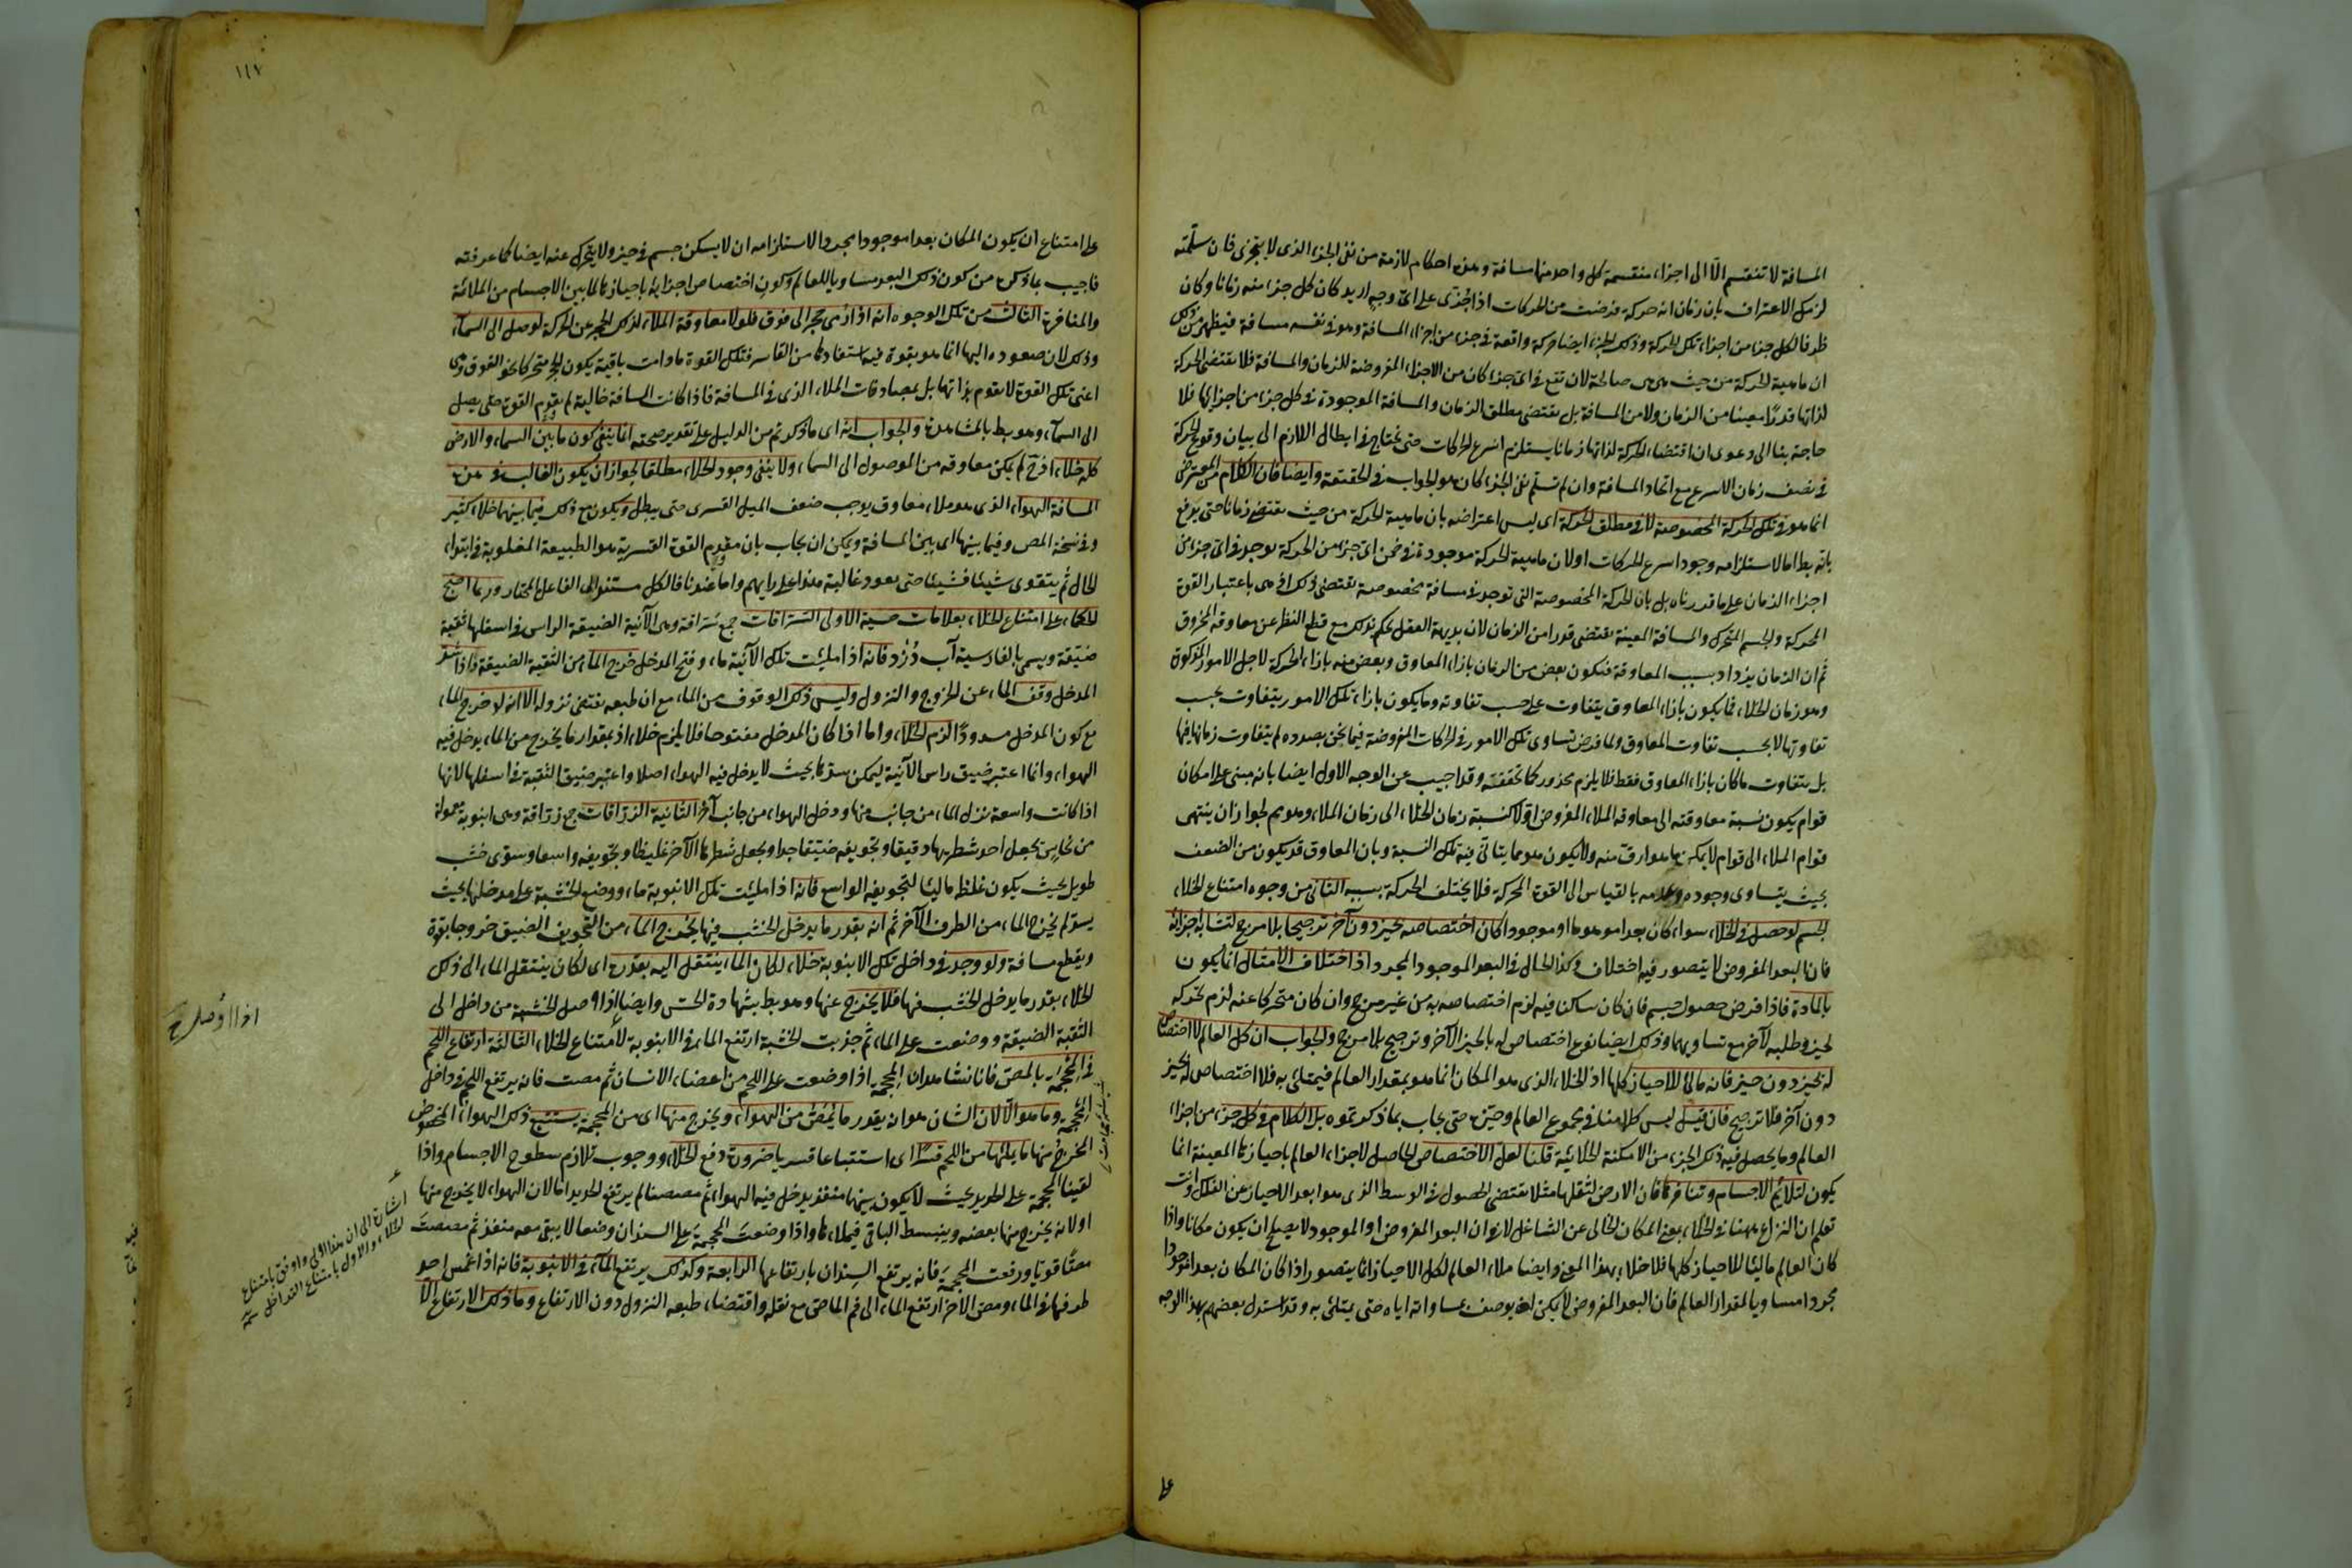 المسافة لا تنقسم الا الى اجزاء منقسمة كل واحد منها مسافة وهذه احكام لازمة من نفى الجزء الذى لا يتجزى فان سلمته
لزمك الاعتراف بان زمان اية حركة فرضت من الحركات اذا جزى على اى وجه اريد كان كل جزء منه زمانا وكان
ظرفا لكل جزء من اجزاء تلك الحركة وذلك الجزء ايضا حركة واقعة فى جزء من اجزاء المسافة وهو فى نفسه مسافة فيظهر من ذلك
ان ماهية الحركة من حيث هى هى صالحة لان تقع فى اى جزء كان من الاجزاء المفروضة للزمان والمسافة فلا تقتضى الحركة
لذاتها قدرا معينا من الزمان ولا من المسافة بل تقتضى مطلق الزمان والمسافة الموجودة فى كل جزء من اجزائها فلا
حاجة بنا الى دعوى ان اقتضاء الحركة لذاتها زمانا يستلزم اسرع الحركات حتى يحتاج فى ابطال اللازم الى بيان وقوع الحركة
فى نصف زمان الاسرع مع اتحاد المسافة وان لم تسلم نفى الجزء كان هو الجواب فى الحقيقة وايضا فان الكلام من المعترض
انما هو فى تلك الحركة المخصوصة لا فى مطلق الحركة اى ليس اعتراضه بان ماهية الحركة من حيث تقتضى زمانا حتى يدفع
بانه بط اما لاستلزامه وجود اسرع الحركات او لان ماهية الحركة موجودة فى ضمن اى جزء من الحركة يوجد فى اى جزء من
اجزاء الزمان على ما قدرناه بل بان الحركة المخصوصة التى توجد فى مسافة مخصوصة تقتضى ذلك اذ هى باعتبار القوة
المحركة والجسم المتحرك والمسافة المعينة تقتضى قدرا من الزمان لان بديهة العقل تحكم بذلك مع قطع النظر عن معاوقة المخروق
ثم ان الزمان يزداد بسبب المعاوقة فتكون بعض من الزمان بازاء المعاوق وبعض منه بازاء الحركة لاجل الامور المذكورة
وهو زمان الخلاء فما يكون بازاء المعاوق يتفاوت على حسب تفاوته وما يكون بازاء تلك الامور يتفاوت بحسب
تفاوتها لا بحسب تفاوت المعاوق ولما فرض تساوى تلك الامور فى الحركات المفروضة فيما نحن بصدده لم يتفاوت زمانها فيها
بل يتفاوت ما كان بازاء المعاوق فقط فلا يلزم محذور كما تحققته وقد اجيب عن الوجه الاول ايضا بانه مبنى على امكان
قوام يكون نسبة معاوقته الى معاوقة الملاء المفروض اولا كنسبة زمان الخلاء الى زمان الملاء وهو مم لجواز ان ينتهى
قوام الملاء الى قوام لا يمكن ما هو ارق منه ولا يكون هو مما يتأتى فيه تلك النسبة وبان المعاوق قد يكون من الضعف
بحيث يتساوى وجوده وعدمه بالقياس الى القوة المحركة فلا يختلف الحركة بسببه الثانى من وجوه امتناع الخلاء
الجسم لو حصل فى الخلاء سواء كان بعدا موهوما او موجودا كان اختصاصه بحيز دون آخر ترجيحا بلا مرجح لتشابه اجزائه
فان البعد المفروض لا يتصور فيه اختلاف وكذا الحال فى البعد الموجود المجرد اذ اختلاف الامثال انما يكون
بالمادة فاذا فرض حصول جسم فان كان ساكنا فيه لزم اختصاصه به من غير مرجح وان كان متحركا عنه لزم تحركه
لحيز وطلبه لآخر مع تساويهما وذلك ايضا نوع اختصاص له بالحيز الآخر وترجيح بلا مرجح والجواب ان كل العالم لا اختصاص
له بحيز دون حيز فانه مالئ للاحياز كلها اذ الخلاء الذى هو المكان انما هو بمقدار العالم فيمتلئ به فلا اختصاص له بحيز
دون آخر فلا ترجيح فان قيل ليس كلامنا فى مجموع العالم وحيزه حتى يجاب بما ذكرتموه بل الكلام فى كل جزء من اجزاء
العالم وما يحصل فيه ذلك الجزء من الامكنة الخلائية قلنا لعل الاختصاص الحاصل لاجزاء العالم باحيازها المعينة انما
يكون لتلائم الاجسام وتنافرها فان الارض لثقلها مثلا تقتضى الحصول فى الوسط الذى هو ابعد الاحياز عن الفلك وانت
تعلم ان النزاع ههنا فى الخلاء بمعنى المكان الخالى عن الشاغل لا فى ان البعد المفروض او الموجود لا يصلح ان يكون مكانا واذا
كان العالم مالئا للاحياز كلها فلا خلاء بهذا المعنى وايضا ملاء العالم لكل الاحياز انما يتصور اذا كان المكان بعدا موجودا
مجردا مساويا لمقدار العالم فان البعد المفروض لا يمكن ان يوصف بمساواته اياه حتى يمتلئ به وقد استدل بعضهم بهذا الوجه
على
١١٧
على امتناع ان يكون المكان بعدا موجودا مجردا لاستلزامه ان لا يسكن جسم فى حيز ولا يتحرك عنه ايضا كما عرفته
فاجيب بما ذكر من كون ذلك البعد مساويا للعالم وكون اختصاص اجزائه باحيازها لما بين الاجسام من الملائمة
والمنافرة الثالث من تلك الوجوه انه اذا رمى حجر الى فوق فلولا معاوقة الملاء لذلك الحجر عن الحركة لوصل الى السماء
وذلك لان صعوده اليها انما هو بقوة فيه استفادها من القاسر فتلك القوة ما دامت باقية يكون الحجر متحركا نحو الفوق وهى
اعنى تلك القوة لا تعدم بذاتها بل بمصادمات الملاء الذى فى المسافة فاذا كانت المسافة خالية لم تعدم القوة حتى يصل
الى السماء وهو بط بالمشاهدة والجواب انه اى ما ذكرتم من الدليل على تقدير صحته انما ينفى كون ما بين السماء والارض
كله خلاء اذ ح لم يكن معاوقه من الوصول الى السماء ولا ينفى وجود الخلاء مطلقا لجواز ان يكون الغالب فى هذه
المسافة الهواء الذى هو ملاء معاوق يوجب ضعف الميل القسرى حتى يبطل ويكون مع ذلك فيما بينهما خلاء كثير
وفى نسخة المص وفيما بينها اى بين المسافة ويمكن ان يجاب بان معدم القوة القسرية هو الطبيعة المغلوبة فى ابتداء
الحال ثم يتقوى شيئا فشيئا حتى يعود غالبة هذا على رأيهم واما عندنا فالكل مستند الى الفاعل المختار وربما احتج
الحكماء على امتناع الخلاء بعلامات حسية الاولى السراقات جمع سراقة وهى الآنية الضيقة الراس فى اسفلها ثقبة
ضيقة ويسمى بالفارسية آب دزد فانه اذا ملئت تلك الآنية ماء وفتح المدخل خرج الماء من الثقبة الضيقة فاذا سد
المدخل وقف الماء عن الخروج والنزول وليس ذلك الوقوف من الماء مع ان طبعه تقتضى نزوله الا انه لو خرج الماء
مع كون المدخل مسدودا لزم الخلاء واما اذا كان المدخل مفتوحا فلا يلزم خلاء اذ بمقدار ما يخرج من الماء يدخل فيه
الهواء وانما اعتبر ضيق راس الآنية ليمكن سدها بحيث لا يدخل فيه الهواء اصلا واعتبر ضيق الثقبة فى اسفلها لانها
اذا كانت واسعة نزل الماء من جانب منها ودخل الهواء من جانب آخر الثانية الزراقات جمع زراقة وهى انبوبة معمولة
من نحاس يجعل احد شطريها دقيقا وتجويفه ضيقا جدا ويجعل شطرها الآخر غليظا وتجويفه واسعا وسوى خشب
طويل بحيث يكون غلظه مالئا لتجويفه الواسع فانه اذا ملئت تلك الانبوبة ماء ووضع الخشبة على مدخلها بحيث
يسده لم يخرج الماء من الطرف الآخر ثم انه بقدر ما يدخل الخشب فيها يخرج الماء من التجويف الضيق خروجا بقوة
ويقطع مسافة ولو وجد فى داخل تلك الانبوبة خلاء لكان الماء ينتقل اليه بقدره اى لكان ينتقل الماء الى ذلك
الخلاء بقدر ما يدخل الخشب فيها فلا يخرج عنها وهو بط بشهادة الحس وايضا اذا وصل الخشبة من داخل الى
الثقبة الضيقة ووضعت على الماء ثم جذبت الخشبة ارتفع الماء فى الانبوبة لامتناع الخلاء الثالثة ارتفاع اللحم
فى المحجمة بالمص فانا نشاهد ان المحجمة اذا وضعت على اللحم من اعضاء الانسان ثم مصت فانه يرتفع اللحم فى داخل
المحجمة وما هو الا لان الشان هو انه بقدر ما يمص من الهواء ويخرج منها اى من المحجمة يستتبع ذلك الهواء الممصوص
المخرج منها ما يملئها من اللحم قسرا اى استتباعا قسريا ضرورة دفع الخلاء ووجوب تلازم سطوح الاجسام واذا
لقينا المحجمة على الحديد بحيث لا يكون بينهما منفذ يدخل فيه الهواء ثم مصصنا لم يرتفع الحديد اما لان الهواء لا يخرج منها
او لانه يخرج منها بعضه وينبسط الباقى فيملاءها واذا وضعت المحجمة على السندان وضعا لا يبقى معه منفذ ثم مصصت
مصا قويا ورفعت المحجمة فانه يرتفع السندان بارتفاعها الرابعة وكذلك يرتفع الماء فى الانبوبة فانه اذا غمس احد
طرفيها فى الماء ومص الآخر ارتفع الماء الى فم الماص مع ثقله واقتضاء طبعه النزول دون الارتفاع وما ذلك الارتفاع الا
اشارة الى ان هذا اولى واوفق بامتناع
الخلاء والاول بامتناع التداخل سمه